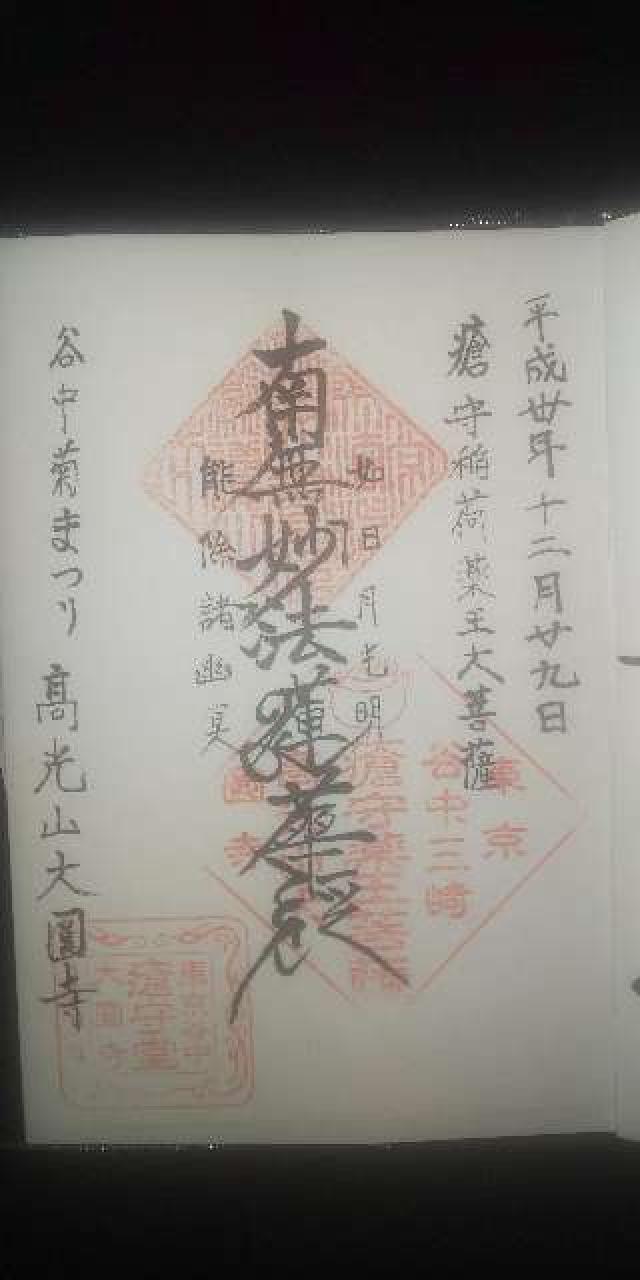 平成丗年十二月廿九日
瘡守稲荷薬王大菩薩
如日月光明
南無妙法蓮華経
能除諸幽冥
谷中菊まつり 高光山大圓寺
東京
谷中三崎
瘡守薬王菩薩
圓寺
東京谷中
瘡守堂
大圓寺